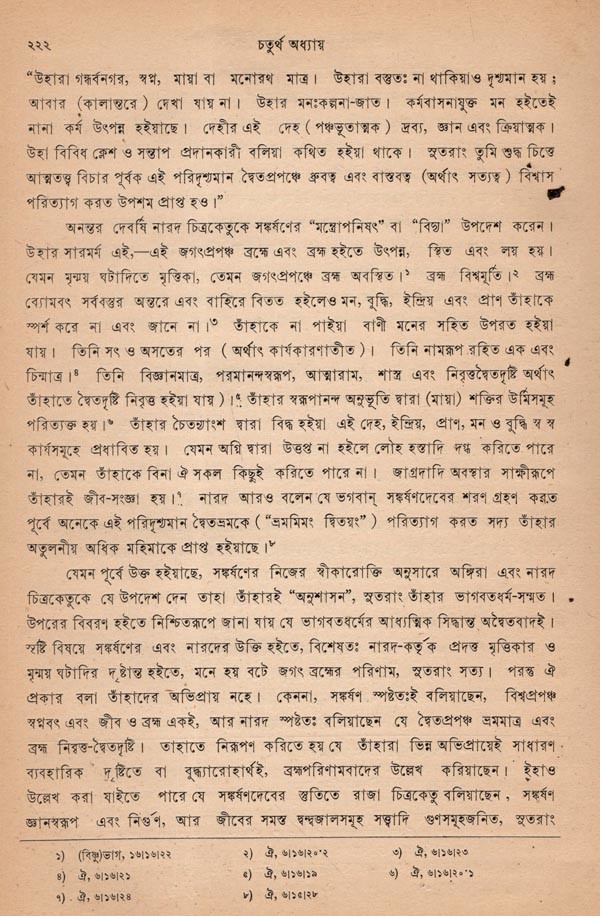 ২২২ চতুর্থ অধ্যায়
“উহারা গন্ধর্বনগর, স্বপ্ন, মায়া বা মনোরথ মাত্র। উহারা বস্তুতঃ না থাকিয়াও দৃশ্যমান হয়;
আবার (কালান্তরে) দেখা যায় না। উহার মনঃকল্পনা-জাত। কর্মবাসনাযুক্ত মন হইতেই
নানা কর্ম উৎপন্ন হইয়াছে। দেহীর এই দেহ (পঞ্চভূতাত্মক) দ্রব্য, জ্ঞান এবং ক্রিয়াত্মক।
উহা বিবিধ ক্লেশ ও সন্তাপ প্রদানকারী বলিয়া কথিত হইয়া থাকে। সুতরাং তুমি শুদ্ধ চিত্তে
আত্মতত্ত্ব বিচার পূর্বক এই পরিদৃশ্যমান দ্বৈতপ্রপঞ্চে ধ্রুবত্ব এবং বাস্তবত্ব (অর্থাৎ সত্যত্ব) বিশ্বাস
পরিত্যাগ করত উপশম প্রাপ্ত হও।”
অনন্তর দেবর্ষি নারদ চিত্রকেতুকে সঙ্কর্ষণের “মন্ত্রোপনিষৎ” বা “বিদ্যা” উপদেশ করেন।
উহার সারমর্ম এই,—এই জগৎপ্রপঞ্চ ব্রহ্মে এবং ব্রহ্ম হইতে উৎপন্ন, স্থিত এবং লয় হয়।
যেমন মৃন্ময় ঘটাদিতে মৃত্তিকা, তেমন জগৎপ্রপঞ্চে ব্রহ্ম অবস্থিত।১ ব্রহ্ম বিশ্বমূর্তি।২ ব্রহ্ম
ব্যোমবৎ সর্ববস্তুর অন্তরে এবং বাহিরে বিতত হইলেও মন, বুদ্ধি, ইন্দ্রিয় এবং প্রাণ তাঁহাকে
স্পর্শ করে না এবং জানে না।৩ তাঁহাকে না পাইয়া বাণী মনের সহিত উপরত হইয়া
যায়। তিনি সৎ ও অসতের পর (অর্থাৎ কার্যকারণাতীত)। তিনি নামরূপ রহিত এক এবং
চিন্মাত্র।৪ তিনি বিজ্ঞানমাত্র, পরমানন্দস্বরূপ, আত্মারাম, শান্ত এবং নিবৃত্তদ্বৈতদৃষ্টি অর্থাৎ
তাঁহাতে দ্বৈতদৃষ্টি নিবৃত্ত হইয়া যায়)।৫ তাঁহার স্বরূপানন্দ অনুভূতি দ্বারা (মায়া) শক্তির উর্মিসমূহ
পরিত্যক্ত হয়।৬ তাঁহার চৈতন্যাংশ দ্বারা বিদ্ধ হইয়া এই দেহ, ইন্দ্রিয়, প্রাণ, মন ও বুদ্ধি স্ব স্ব
কার্যসমূহে প্রধাবিত হয়। যেমন অগ্নি দ্বারা উত্তপ্ত না হইলে লৌহ হস্তাদি দগ্ধ করিতে পারে
না, তেমন তাঁহাকে বিনা ঐ সকল কিছুই করিতে পারে না। জাগ্রদাদি অবস্থার সাক্ষীরূপে
তাঁহারই জীব-সংজ্ঞা হয়।৭ নারদ আরও বলেন যে ভগবান্ সঙ্কর্ষণদেবের শরণ গ্রহণ করত
পূর্বে অনেকে এই পরিদৃশ্যমান দ্বৈতভ্রমকে (“ভ্রমমিমং দ্বিতয়ং”) পরিত্যাগ করত সদ্য তাঁহার
অতুলনীয় অধিক মহিমাকে প্রাপ্ত হইয়াছে।৮
যেমন পূর্বে উক্ত হইয়াছে, সঙ্কর্ষণের নিজের স্বীকারোক্তি অনুসারে অঙ্গিরা এবং নারদ
চিত্রকেতুকে যে উপদেশ দেন তাহা তাঁহারই “অনুশাসন”, সুতরাং তাঁহার ভাগবতধর্ম-সম্মত।
উপরের বিবরণ হইতে নিশ্চিতরূপে জানা যায় যে ভাগবতধর্মের আধ্যাত্মিক সিদ্ধান্ত অদ্বৈতবাদই।
সৃষ্টি বিষয়ে সঙ্কর্ষণের এবং নারদের উক্তি হইতে, বিশেষতঃ নারদ-কর্তৃক প্রদত্ত মৃত্তিকার ও
মৃন্ময় ঘটাদির দৃষ্টান্ত হইতে, মনে হয় বটে জগৎ ব্রহ্মের পরিণাম, সুতরাং সত্য। পরন্তু ঐ
প্রকার বলা তাঁহাদের অভিপ্রায় নহে। কেননা, সঙ্কর্ষণ স্পষ্টতঃই বলিয়াছেন, বিশ্বপ্রপঞ্চ
স্বপ্নবৎ এবং জীব ও ব্রহ্ম একই, আর নারদ স্পষ্টতঃ বলিয়াছেন যে দ্বৈতপ্রপঞ্চ ভ্রমমাত্র এবং
ব্রহ্ম নিবৃত্ত-দ্বৈতদৃষ্টি। তাহাতে নিরূপণ করিতে হয় যে তাঁহারা ভিন্ন অভিপ্রায়েই সাধারণ
ব্যবহারিক দৃষ্টিতে বা বুদ্ধ্যারোহার্থই, ব্রহ্মপরিণামবাদের উল্লেখ করিয়াছেন। ইহাও
উল্লেখ করা যাইতে পারে যে সঙ্কর্ষণদেবের স্তুতিতে রাজা চিত্রকেতু বলিয়াছেন, সঙ্কর্ষণ
জ্ঞানস্বরূপ এবং নির্গুণ, আর জীবের সমস্ত দ্বন্দ্বজালসমূহ সত্ত্বাদি গুণসমূহজনিত, সুতরাং
১) (বিষ্ণু)ভাগ, ১৬।১৬।২২ ২) ঐ, ৬।১৬।২০·২ ৩) ঐ, ৬।১৬।২৩
৪) ঐ, ৬।১৬।২১ ৫) ঐ, ৬।১৬।১৯ ৬) ঐ, ৬।১৬।২০·১
৭) ঐ, ৬।১৬।২৪ ৮) ঐ, ৬।১৫।২৮